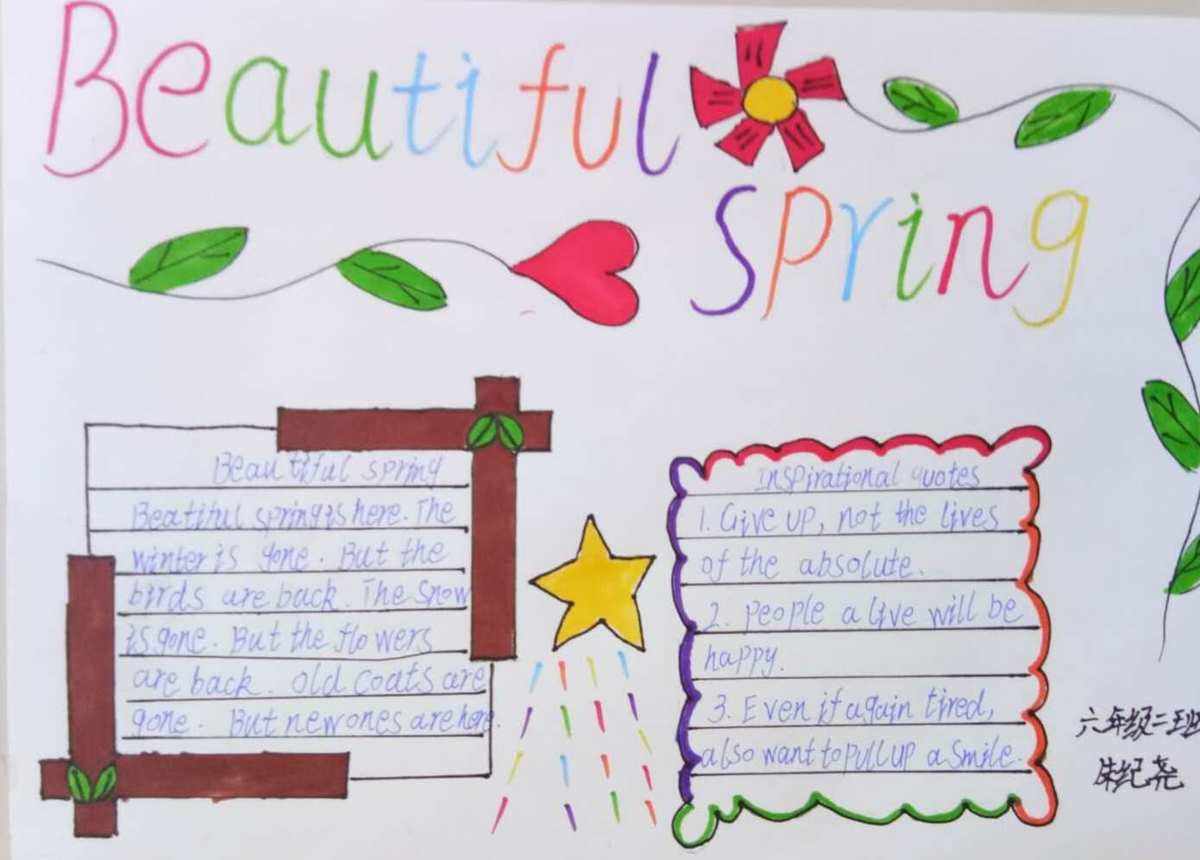 Beautiful
Spring
Beautiful spring
Beatiful spring is here. The
winter is gone. But the
birds are back. The snow
is gone. But the flowers
are back. old coats are
gone. But new ones are here.
Inspirational quotes
1. Give up, not the lives
of the absolute.
2. people alive will be
happy.
3. Even if again tired,
also want to pull up a smile.
六年级二班
朱纪尧